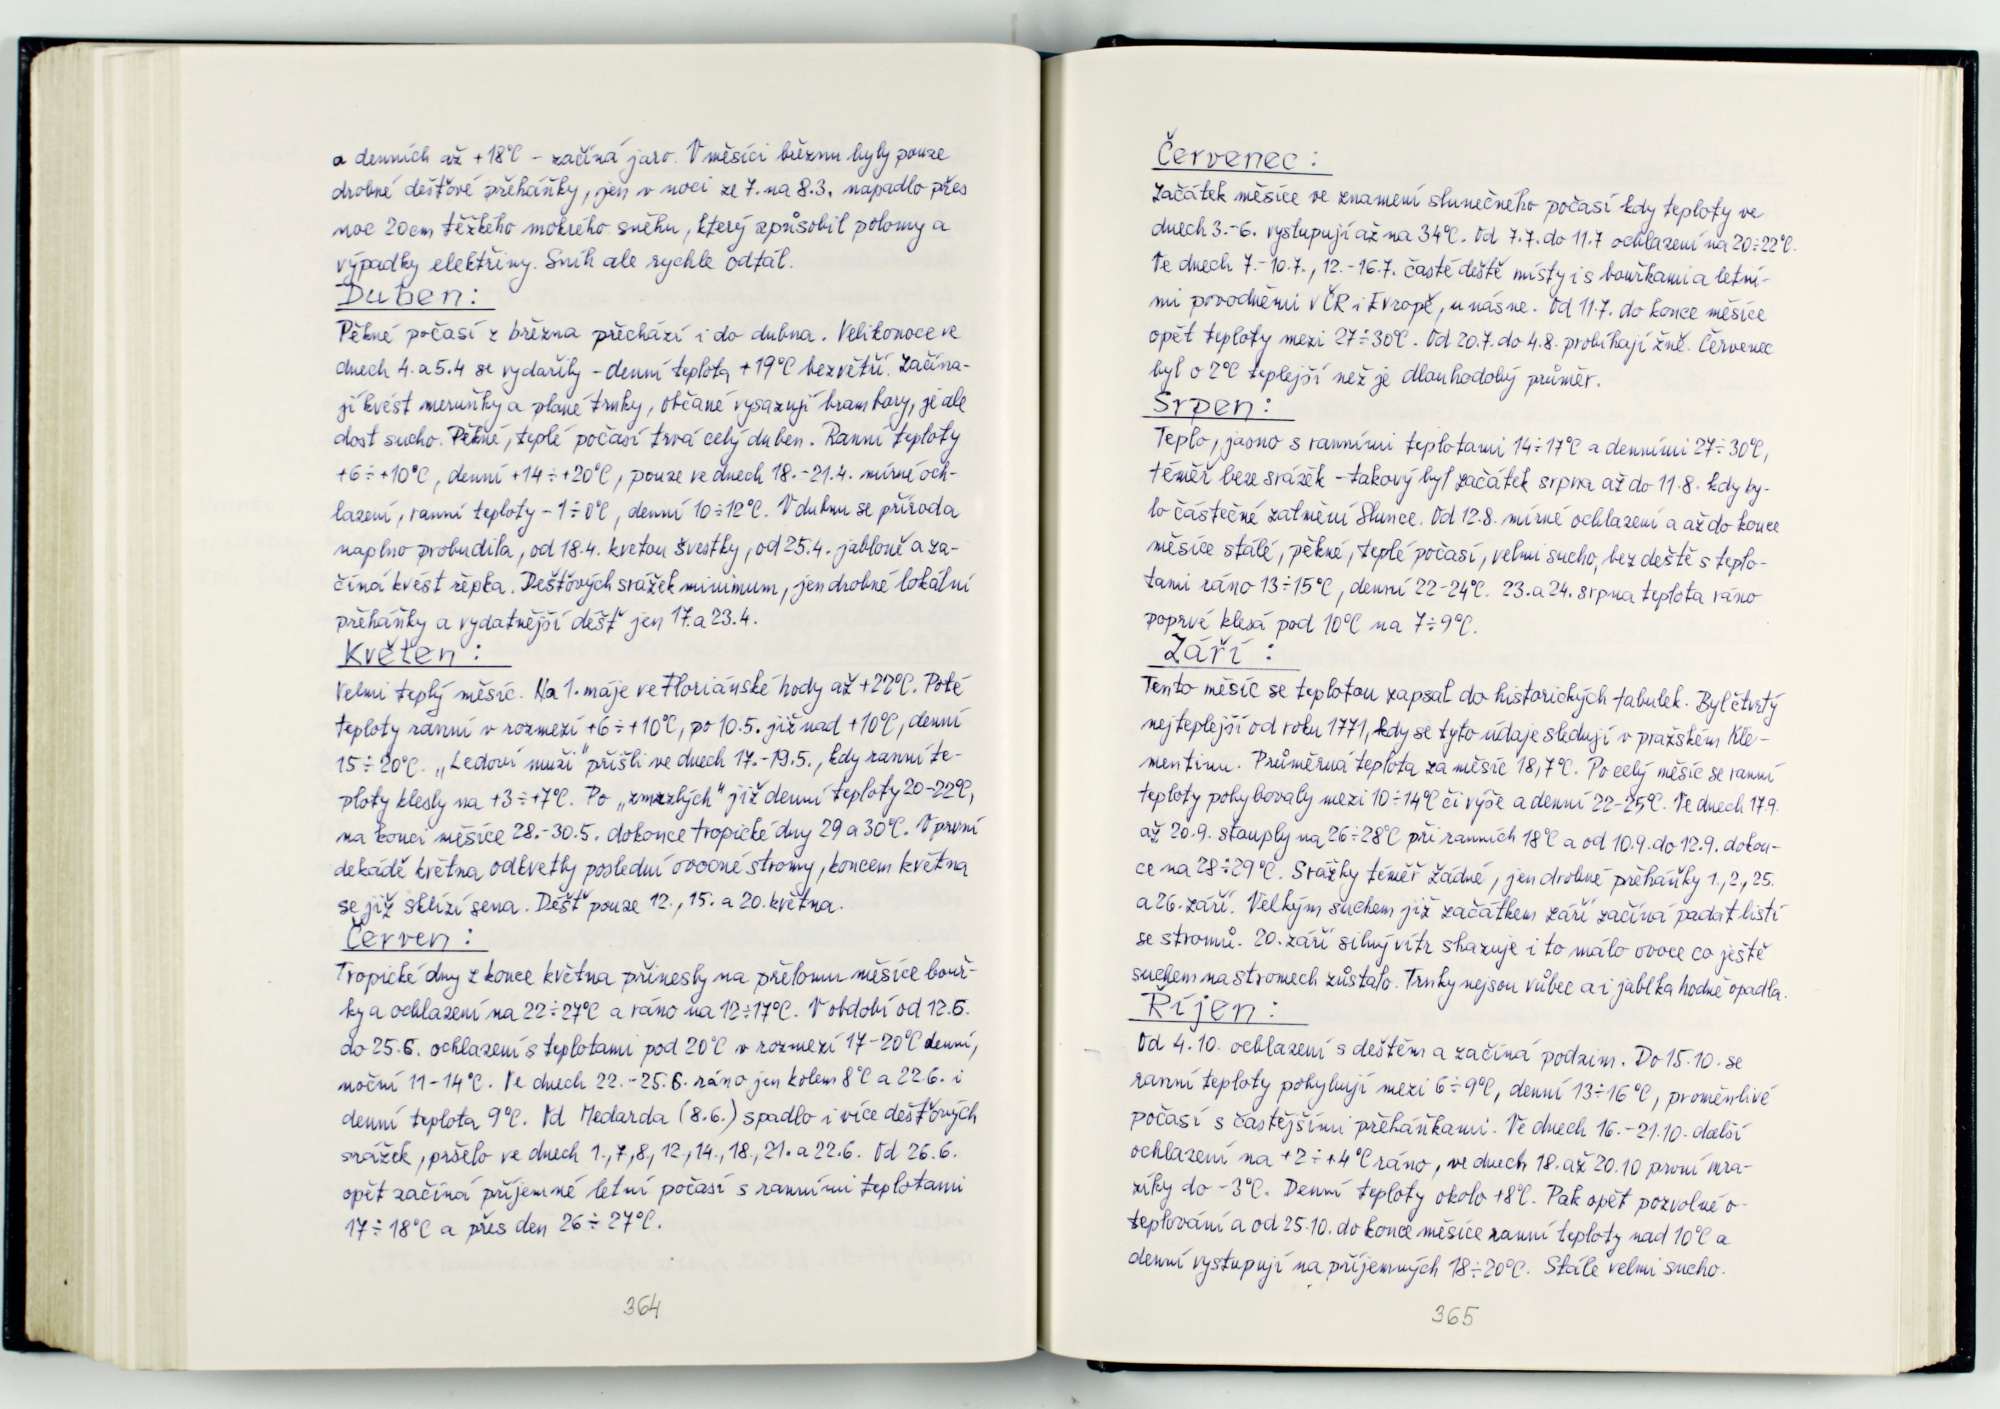 a denních až +18°C - začíná jaro. V měsíci březnu byly pouze
drobné dešťové přeháňky, jen v noci ze 7. na 8.3. napadlo přes
noc 20cm těžkého mokrého sněhu, který způsobil polomy a
výpadky elektřiny. Sníh ale rychle odtál.
Duben:
Pěkné počasí z března přechází i do dubna. Velikonoce ve
dnech 4. a 5.4 se vydařily - denní teplota +19°C bezvětří. Začína-
jí kvést meruňky a plané trnky, občané vysazují brambory, je ale
dost sucho. Pěkné, teplé počasí trvá celý duben. Ranní teploty
+6÷+10°C, denní +14÷+20°C, pouze ve dnech 18.-21.4. mírné och-
lazení, ranní teploty -1÷0°C, denní 10÷12°C. V dubnu se příroda
naplno probudila, od 18.4. kvetou švestky, od 25.4. jabloně a za-
číná kvést řepka. Dešťových srážek minimum, jen drobné lokální
přeháňky a vydatnější déšť jen 17. a 23.4.
Květen:
Velmi teplý měsíc. Na 1. máje ve Floriánské hody až +22°C. Poté
teploty ranní v rozmezí +6÷+10°C, po 10.5. již nad +10°C, denní
15÷20°C. „Ledoví muži" přišli ve dnech 17.-19.5., kdy ranní te-
ploty klesly na +3÷+7°C. Po „zmrzlých" již denní teploty 20-22°C,
na konci měsíce 28.-30.5. dokonce tropické dny 29 a 30°C. V první
dekádě května odkvetly poslední ovocné stromy, koncem května
se již sklízí sena. Déšť pouze 12., 15. a 20. května.
Červen:
Tropické dny z konce května přinesly na přelomu měsíce bouř-
ky a ochlazení na 22÷27°C a ráno na 12÷17°C. V období od 12.6.
do 25.6. ochlazení s teplotami pod 20°C v rozmezí 17-20°C denní,
noční 11-14°C. Ve dnech 22.-25.6. ráno jen kolem 8°C a 22.6. i
denní teplota 9°C. Od Medarda (8.6.) spadlo i více dešťových
srážek, pršelo ve dnech 1.,7.,8., 12.,14.,18.,21. a 22.6. Od 26.6.
opět začíná příjemné letní počasí s ranními teplotami
17÷18°C a přes den 26÷27°C.
364
Červenec:
Začátek měsíce ve znamení slunečného počasí kdy teploty ve
dnech 3.-6. vystupují až na 34°C. Od 7.7. do 11.7 ochlazení na 20÷22°C.
Ve dnech 7.-10.7., 12.-16.7. časté deště místy i s bouřkami a letní-
mi povodněmi v ČR i Evropě, u nás ne. Od 11.7. do konce měsíce
opět teploty mezi 27÷30°C. Od 20.7. do 4.8. probíhají žně. Červenec
byl o 2°C teplejší než je dlouhodobý průměr.
Srpen:
Teplo, jasno s ranními teplotami 14÷17°C a denními 27÷30°C,
téměř beze srážek - takový byl začátek srpna až do 11.8. kdy by-
lo částečné zatmění Slunce. Od 12.8. mírné ochlazení a až do konce
měsíce stálé, pěkné, teplé počasí, velmi sucho, bez deště s teplo-
tami ráno 13÷15°C, denní 22-24°C. 23. a 24. srpna teplota ráno
poprvé klesá pod 10°C na 7÷9°C.
Září:
Tento měsíc se teplotou zapsal do historických tabulek. Byl čtvrtý
nejteplejší od roku 1771, kdy se tyto údaje sledují v pražském Kle-
mentinu. Průměrná teplota za měsíc 18,7°C. Po celý měsíc se ranní
teploty pohybovaly mezi 10÷14°C či výše a denní 22-25°C. Ve dnech 17.9.
až 20.9. stouply na 26÷28°C při ranních 18°C a od 10.9. do 12.9. dokon-
ce na 28÷29°C. Srážky téměř žádné, jen drobné přeháňky 1., 2., 25.
a 26. září. Velkým suchem již začátkem září začíná padat listí
se stromů. 20. září silný vítr shazuje i to málo ovoce co ještě
suchem na stromech zůstalo. Trnky nejsou vůbec a i jablka hodně opadla.
Říjen:
Od 4.10. ochlazení s deštěm a začíná podzim. Do 15.10. se
ranní teploty pohybují mezi 6÷9°C, denní 13÷16°C, proměnlivé
počasí s častějšími přeháňkami. Ve dnech 16.-21.10. další
ochlazení na +2÷+4°C ráno, ve dnech 18. až 20.10 první mra-
zíky do -3°C. Denní teploty okolo +8°C. Pak opět pozvolné o-
teplování a od 25.10. do konce měsíce ranní teploty nad 10°C a
denní vystupují na příjemných 18÷20°C. Stále velmi sucho.
365